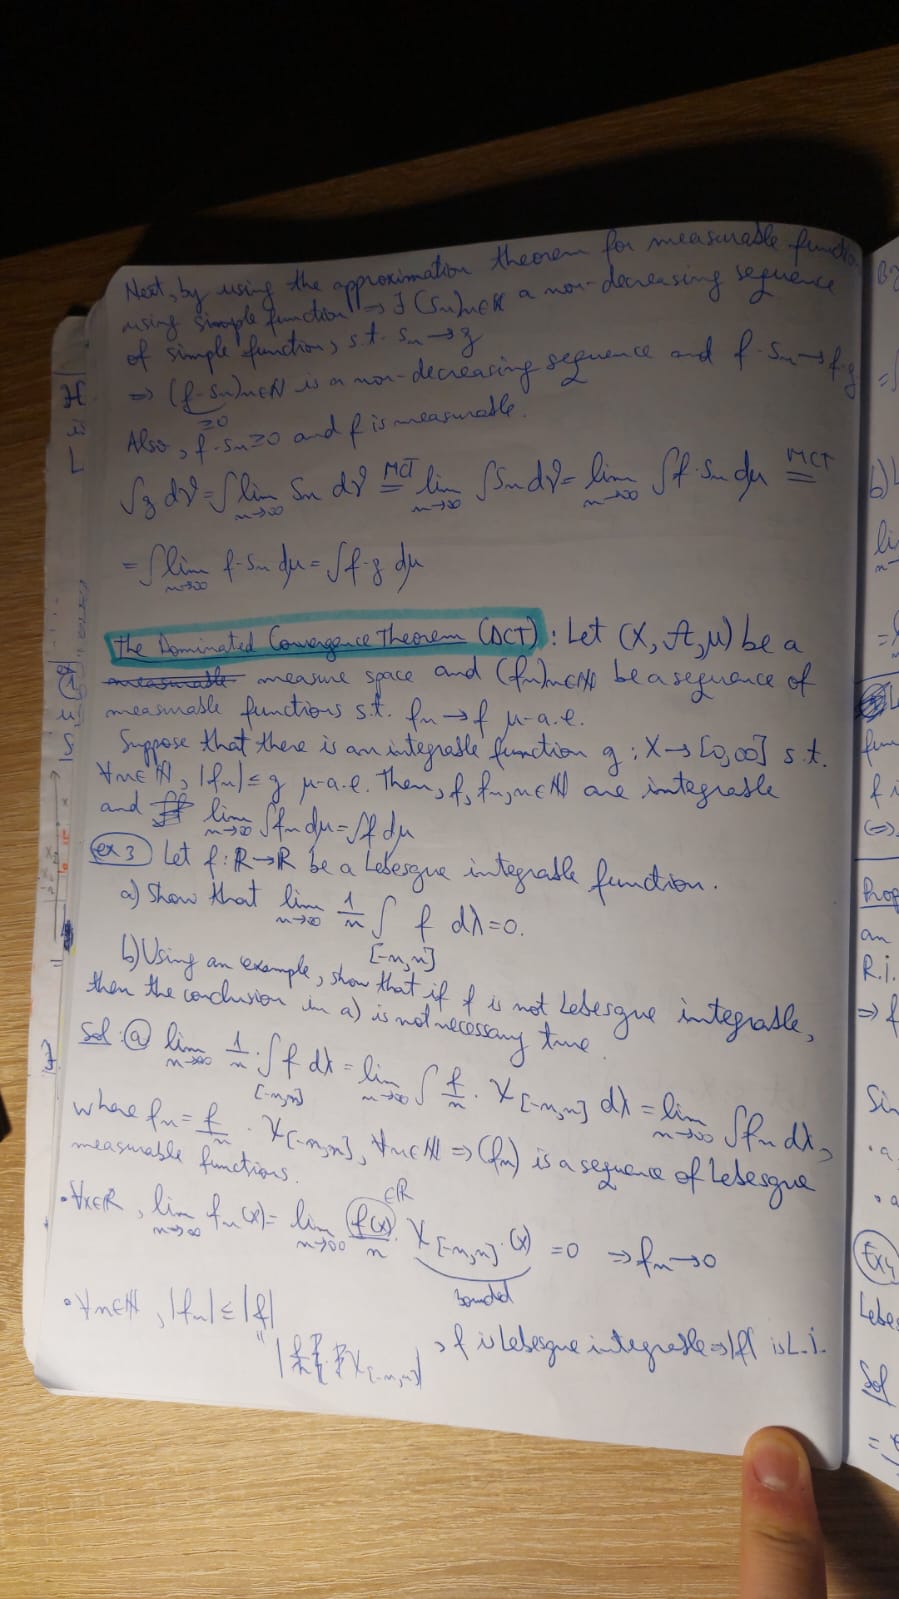 Next, by using the approximation theorem for measurable functio
using simple function => ∃ (Sn)n∈ℕ a non-decreasing sequence
of simple functions s.t. Sn → g
=> (f·Sn)n∈ℕ is a non-decreasing sequence and f·Sn → f·g
≥0
Also, f·Sn≥0 and f is measurable.
∫g dν = ∫ lim n→∞ Sn dν MCT= lim n→∞ ∫Sn dν = lim n→∞ ∫f·Sn dμ MCT=
= ∫ lim n→∞ f·Sn dμ = ∫f·g dμ
The Dominated Convergence Theorem (DCT): Let (X, A, μ) be a
measurable measure space and (fn)n∈ℕ be a sequence of
measurable functions s.t. fn → f μ-a.e.
Suppose that there is an integrable function g: X → [0,∞] s.t.
∀n∈ℕ, |fn| ≤ g μ-a.e. Then, f, fn, n∈ℕ are integrable
and lim n→∞ ∫fn dμ = ∫f dμ
ex 3 Let f: ℝ→ℝ be a Lebesgue integrable function.
a) Show that lim n→∞ 1/n ∫[-n,n] f dλ = 0.
b) Using an example, show that if f is not Lebesgue integrable,
then the conclusion in a) is not necessary true.
Sol: a) lim n→∞ 1/n · ∫[-n,n] f dλ = lim n→∞ ∫ f/n · χ[-n,n] dλ = lim n→∞ ∫fn dλ,
where fn = f/n · χ[-n,n], ∀n∈ℕ => (fn) is a sequence of Lebesgue
measurable functions.
• ∀x∈ℝ, lim n→∞ fn(x) = lim n→∞ f(x)/n · χ[-n,n](x) = 0 => fn → 0
∈ℝ
bounded
• ∀n∈ℕ, |fn| ≤ |f|
, f is Lebesgue integrable => |f| is L.i.